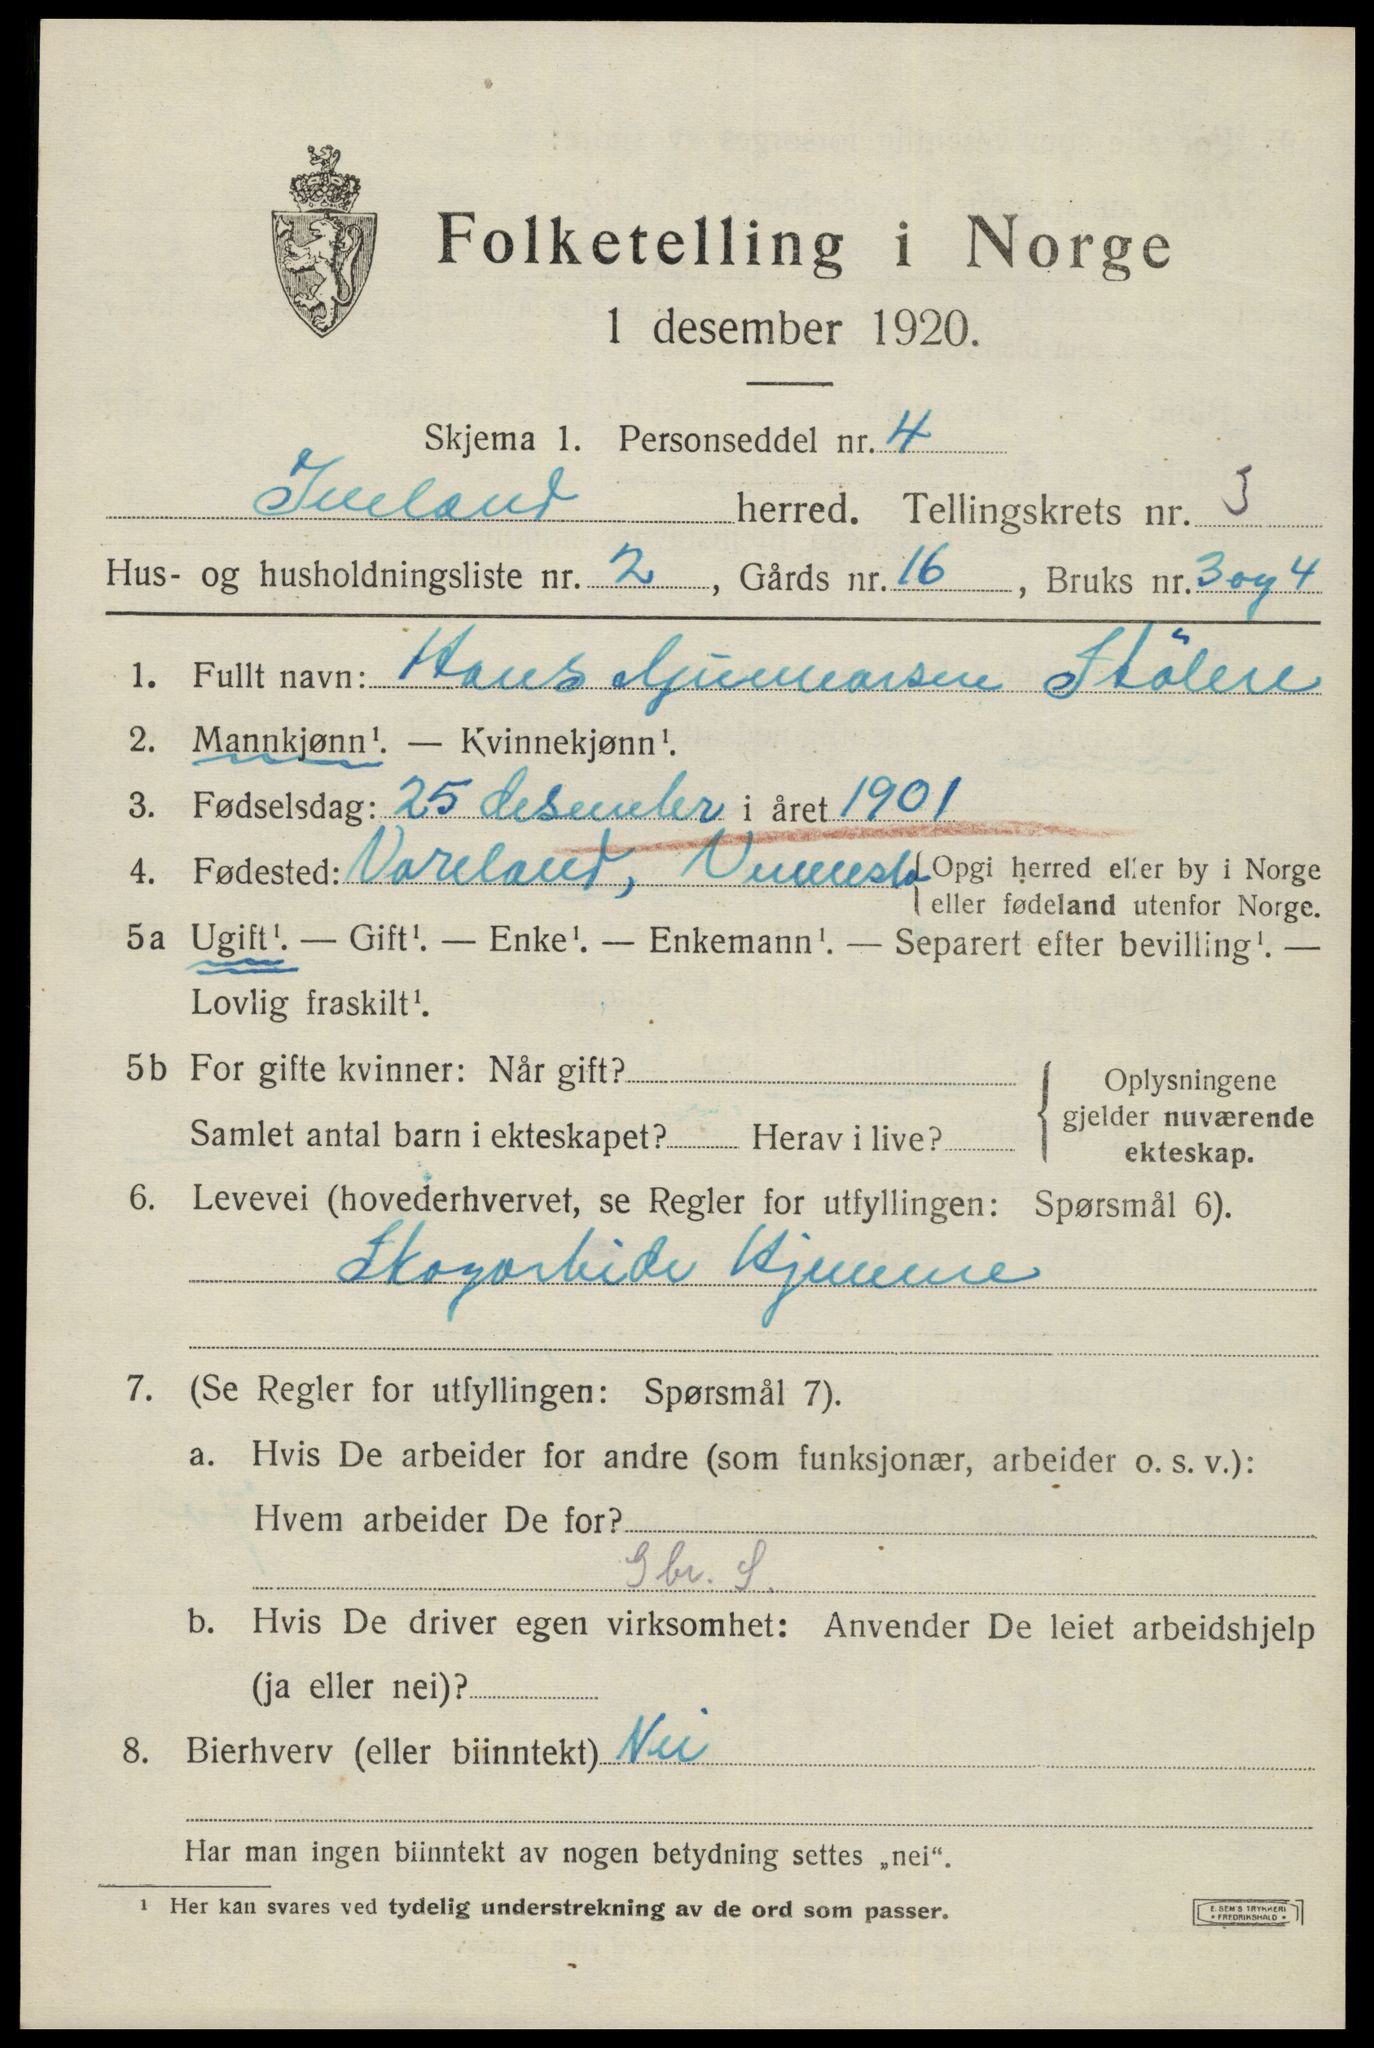 Folketelling i Norge
1 desember 1920.
Skjema 1. Personseddel nr. 4
Iveland herred. Tellingskrets nr. 3
Hus- og husholdningsliste nr. 2, Gårds nr. 16, Bruks nr. 3 og 4
1. Fullt navn: Hans Gunnarsen Stölen
2. Mannkjønn¹. — Kvinnekjønn¹.
3. Fødselsdag: 25 desember i året 1901
4. Fødested: Vareland, Vennesla { Opgi herred eller by i Norge
eller fødeland utenfor Norge.
5a Ugift¹. — Gift¹. — Enke¹. — Enkemann¹. — Separert efter bevilling¹. —
Lovlig fraskilt¹.
5b For gifte kvinner: Når gift?
Samlet antal barn i ekteskapet? Herav i live?
{ Oplysningene
gjelder nuværende
ekteskap.
6. Levevei (hovederhvervet, se Regler for utfyllingen: Spørsmål 6).
Skogarbide Hjemme
7. (Se Regler for utfyllingen: Spørsmål 7).
a. Hvis De arbeider for andre (som funksjonær, arbeider o. s. v.):
Hvem arbeider De for?
Gbr. S.
b. Hvis De driver egen virksomhet: Anvender De leiet arbeidshjelp
(ja eller nei)?
8. Bierhverv (eller biinntekt) Nei
Har man ingen biinntekt av nogen betydning settes „nei“.
¹ Her kan svares ved tydelig understrekning av de ord som passer.
E. SEM'S TRYKKERI
• FREDRIKSHALD •